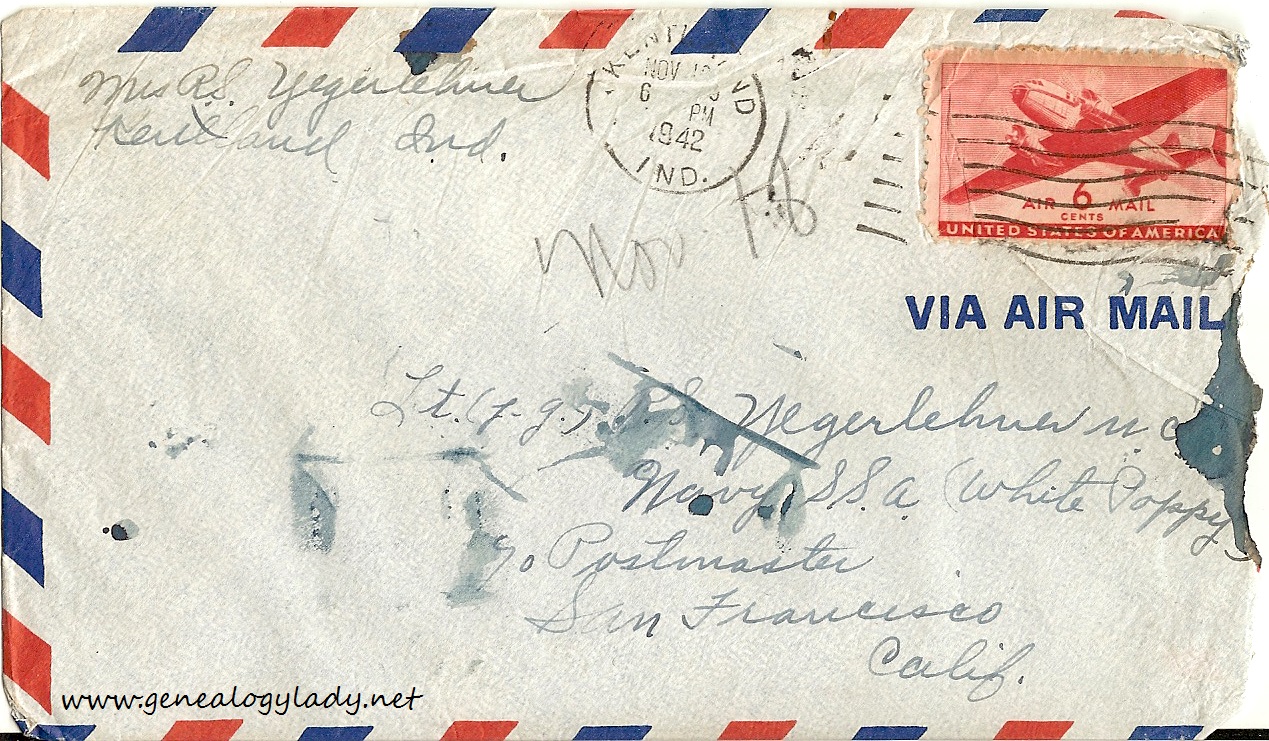 Mrs R.S. Yegerlehner
Kentland Ind.
NOV
6 PM
1942
IND.
Nov
AIR 6 MAIL
CENTS
UNITED STATES OF AMERICA
VIA AIR MAIL
Lt. (j-g.) R.S. Yegerlehner M C
Navy S S A (White Poppy
c/o Postmaster
San Francisco
Calif.
www.genealogylady.net